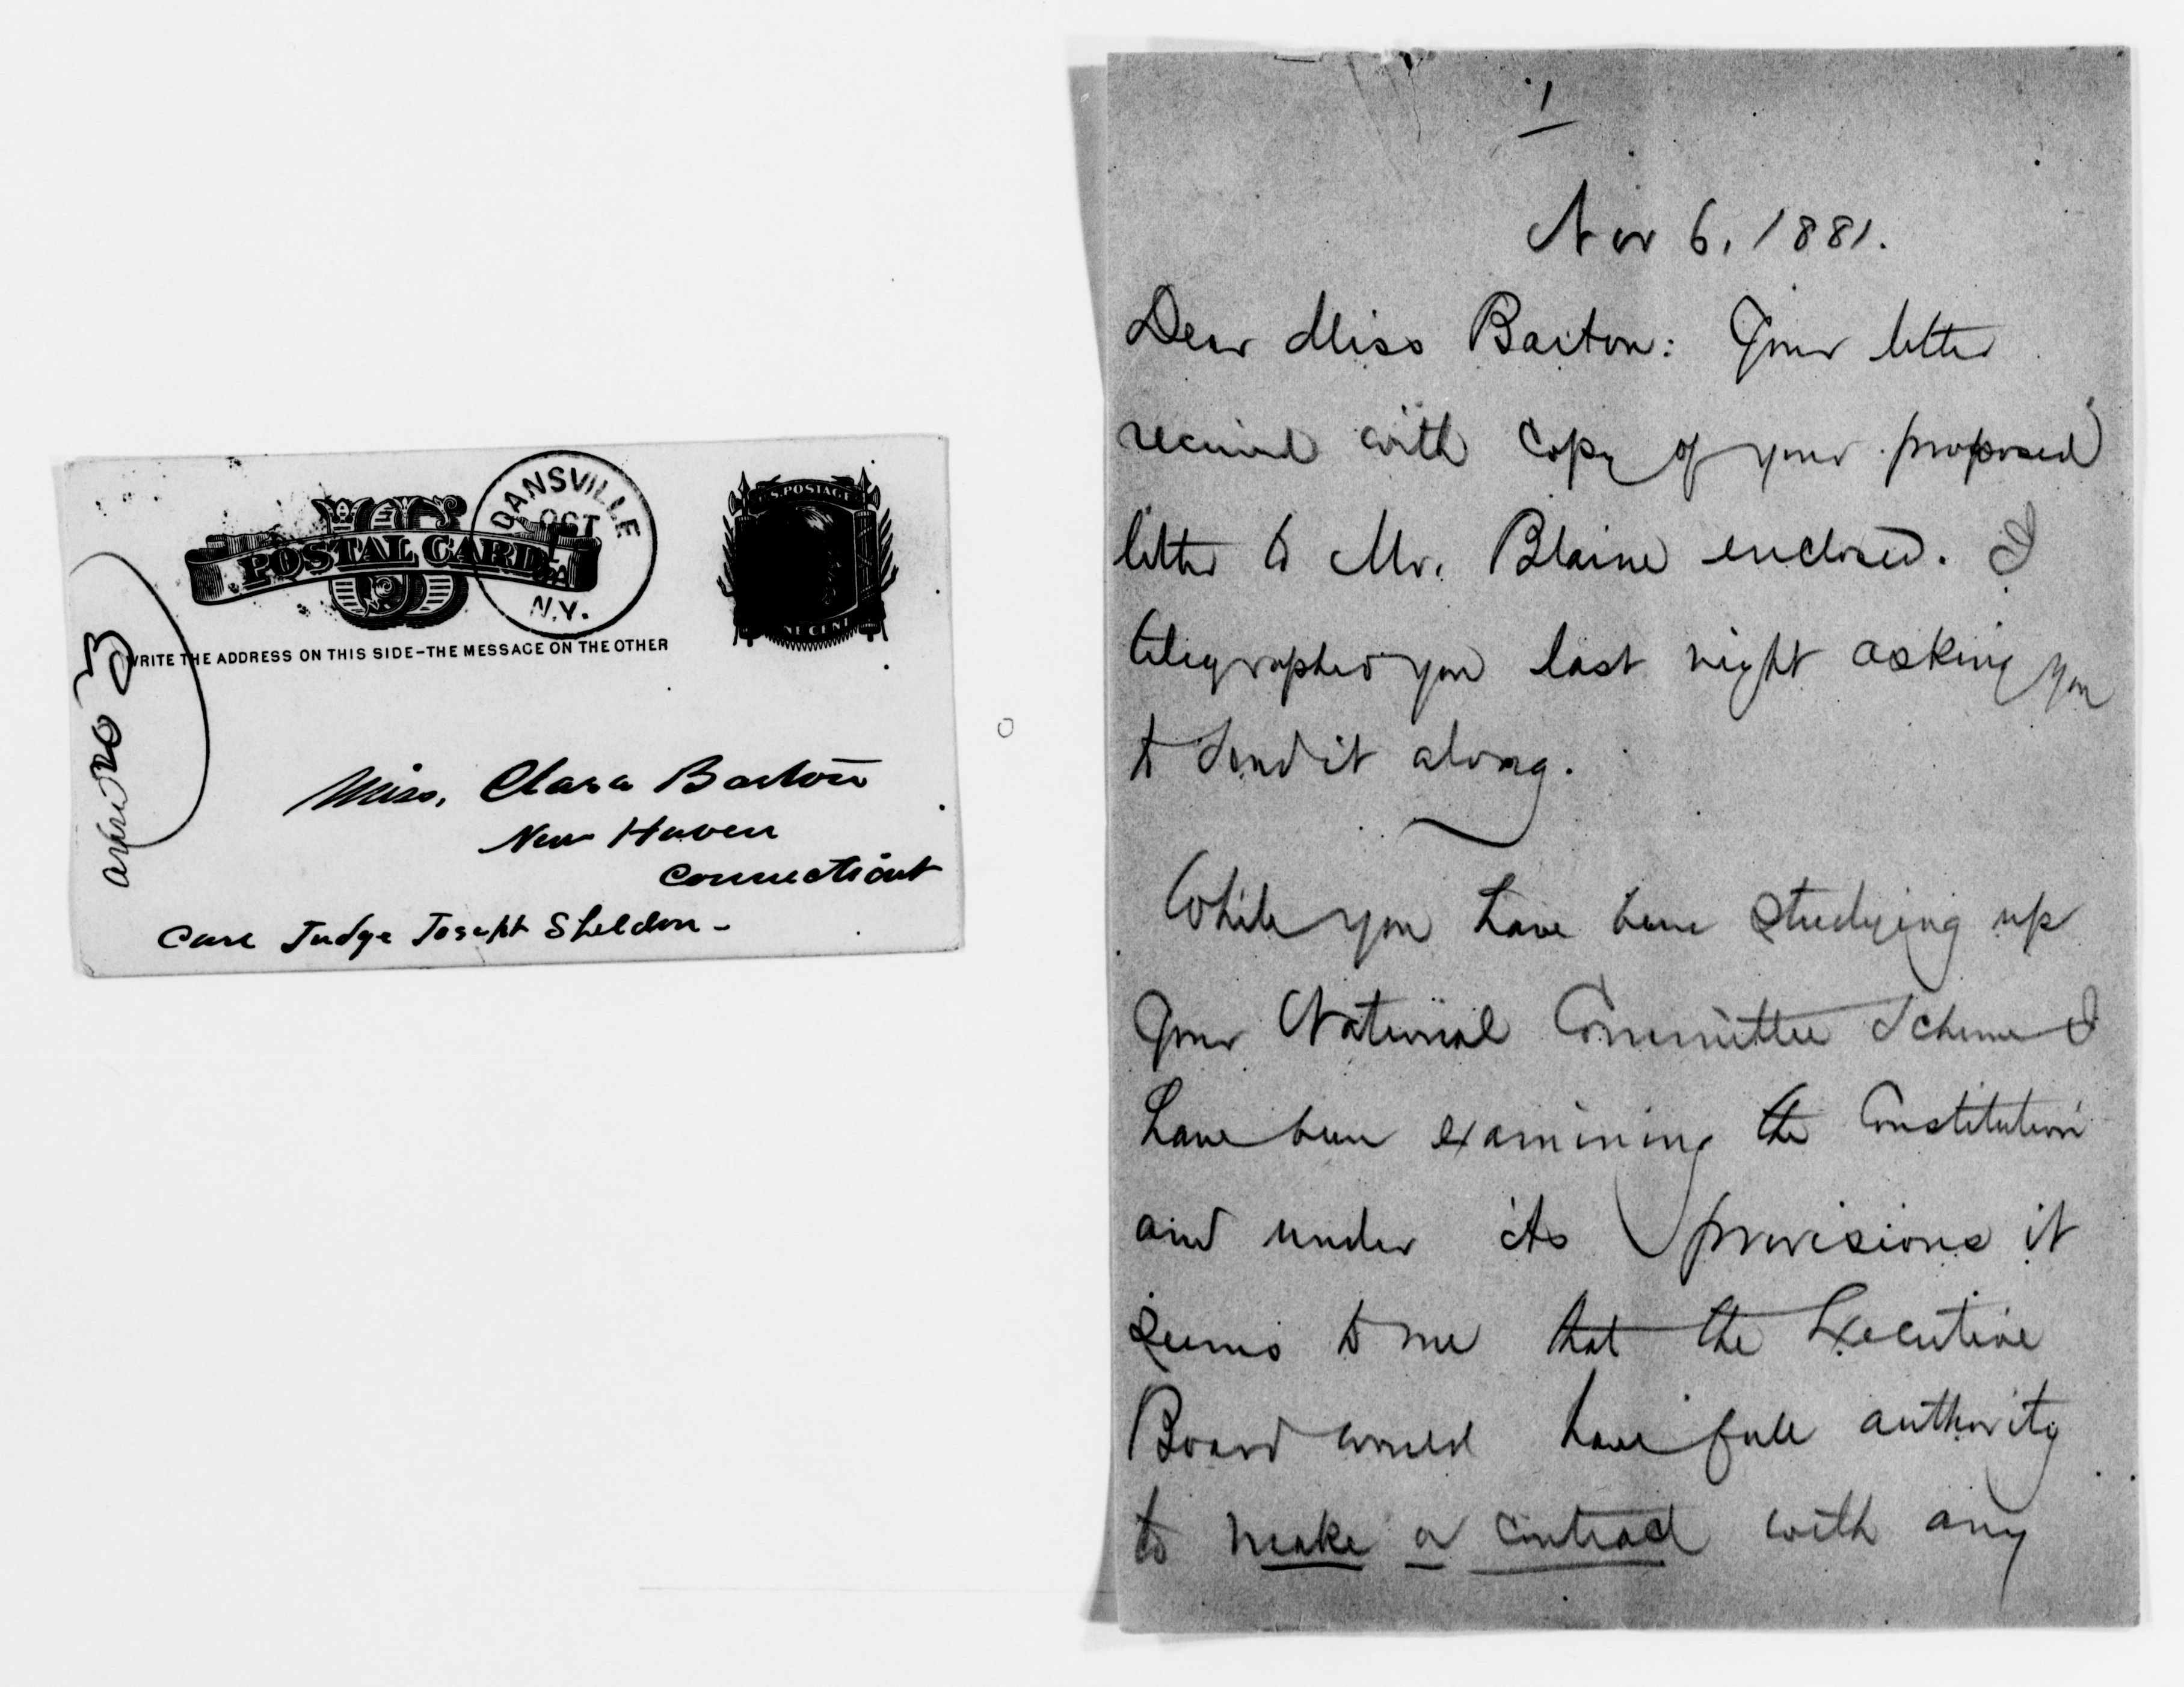 US
POSTAL CARD
DANSVILLE
OCT
N.Y.
U.S. POSTAGE
ONE CENT
WRITE THE ADDRESS ON THIS SIDE-THE MESSAGE ON THE OTHER
Miss. Clara Barton
New Haven
Connecticut
Care Judge Joseph Sheldon-
1
Nov 6, 1881.
Dear Miss Barton: Your letter
received with copy of your proposed
letter to Mr. Blaine enclosed. I
telegraphed you last night asking you
to send it along.
While you have been studying up
your National Committee scheme I
have been examining the Constitution
and under its provisions it
seems to me that the Executive
Board would have full authority
to make a contract with any